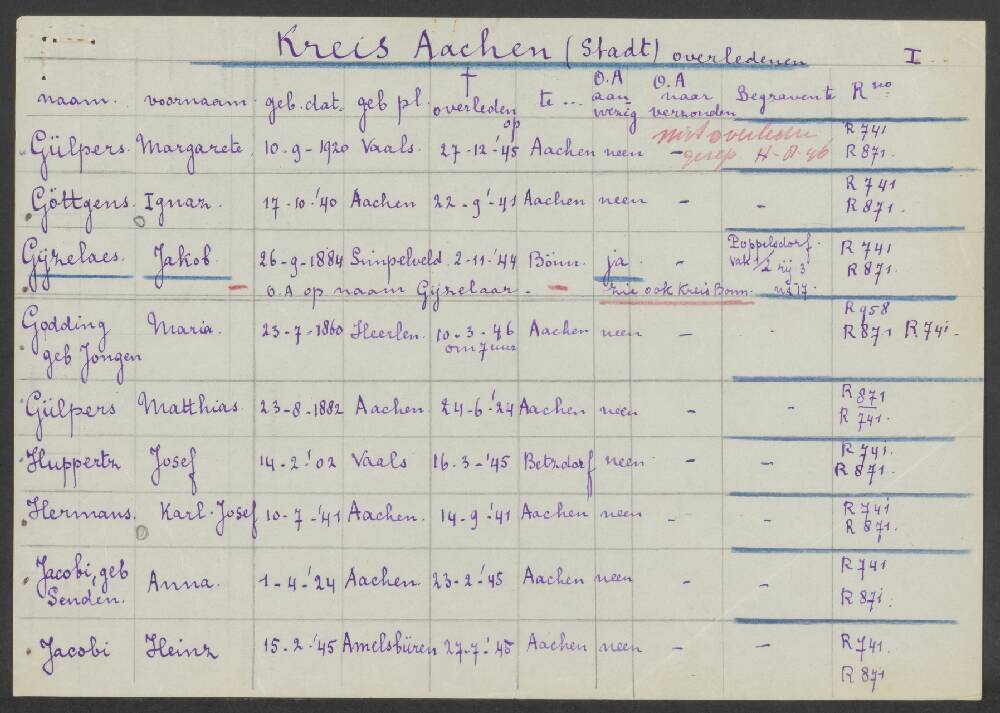 Kreis Aachen (Stadt) overledenen I
naam. voornaam geb. dat. geb pl. † overleden op te ... O.A aanwezig O.A naar verzonden Begraven te R no
Gülpers. Margarete 10-9-1920 Vaals. 27-12-'45 Aachen neen - R 741
niet overleden
R 871.
Göttgens. Ignaz. 17-10-'40 Aachen 22-9-'41 Aachen neen - - R 741
R 871.
Gijzelaes. Jakob. 26-9-1884 Simpelveld 2-11-'44 Bönn. ja - Poppelsdorf. R 741
vak 1/2 rij 3 R 871.
O.A op naam Gijzelaar - zie ook Kreis Bonn. no 17.
Godding Maria. 23-7-1860 Heerlen. 10-3-46 Aachen neen - - R 958
om 7 uur R 871 R 741-
geb Jongen
Gülpers Matthias. 23-8-1882 Aachen. 24-6-'24 Aachen neen - - R 871
R 741.
Huppertz Josef 14-2-'02 Vaals 16-3-'45 Betzdorf neen - - R 741.
R 871.
Hermans. Karl-Josef 10-7-'41 Aachen. 14-9-'41 Aachen neen - - R 741
R 871.
Jacobi, geb Anna. 1-4-'24 Aachen. 23-2-'45 Aachen neen - - R 741
Senden. R 871.
Jacobi Heinz 15-2-'45 Amelsbüren 27-7-'45 Aachen neen - - R 741.
R 871